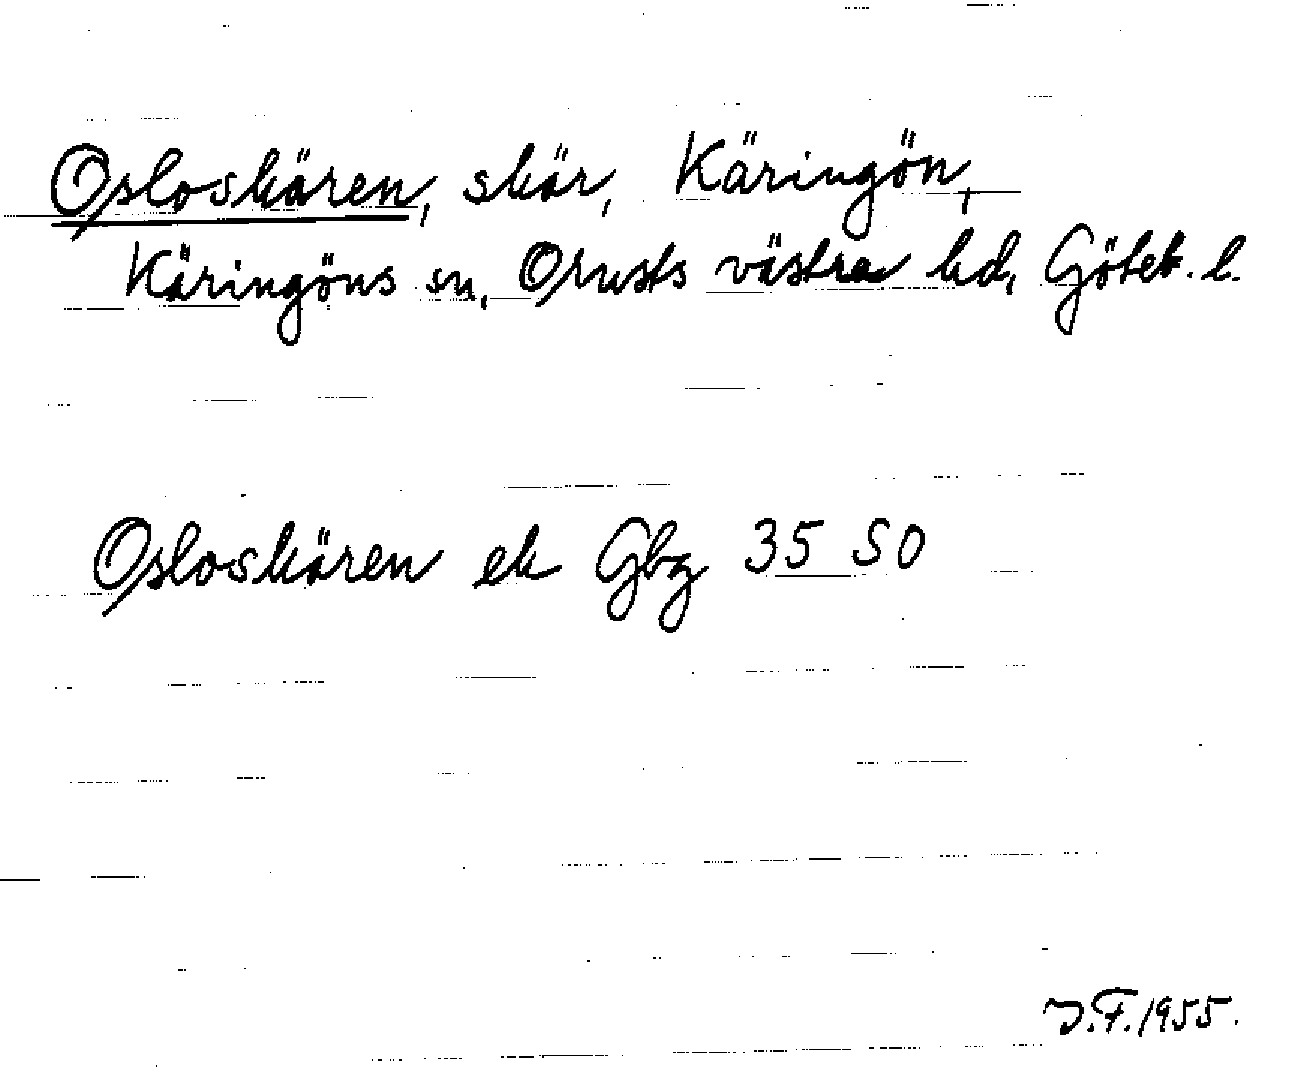 Osloskären, skär, Käringön,
Käringöns sn, Orusts västra hd, Göteb. l.
Osloskären ek Gbg 35 SO
J.F. 1955.